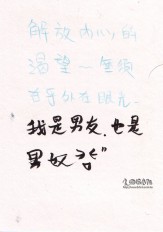 解放内心的
渴望~無須
在乎外在眼光.
我是男友,也是
男奴